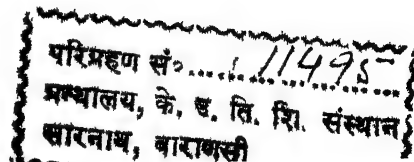 परिग्रहण सं० ..... 11495
ग्रन्थालय, के. उ. ति. शि. संस्थान
सारनाथ, वाराणसी